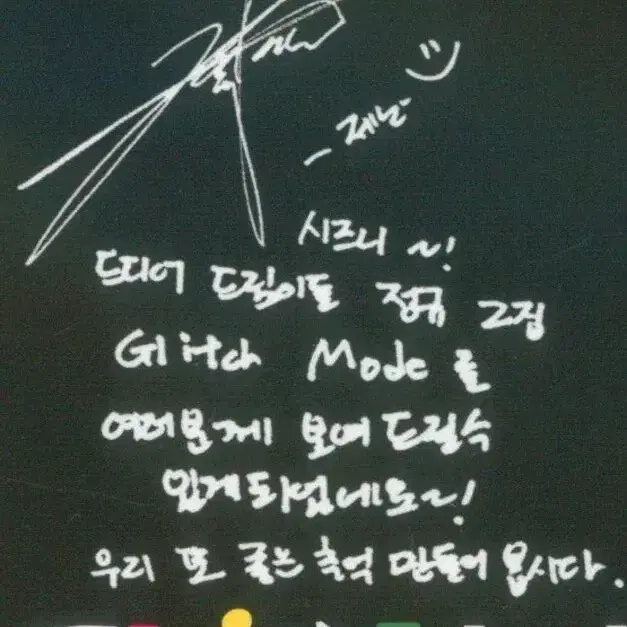 - 제노
시즈니 ~!
드디어 드림이들 정규 2집
Glitch Mode 를
여러분께 보여 드릴수
있게되었네요~!
우리 또 좋은 추억 만들어 봅시다.